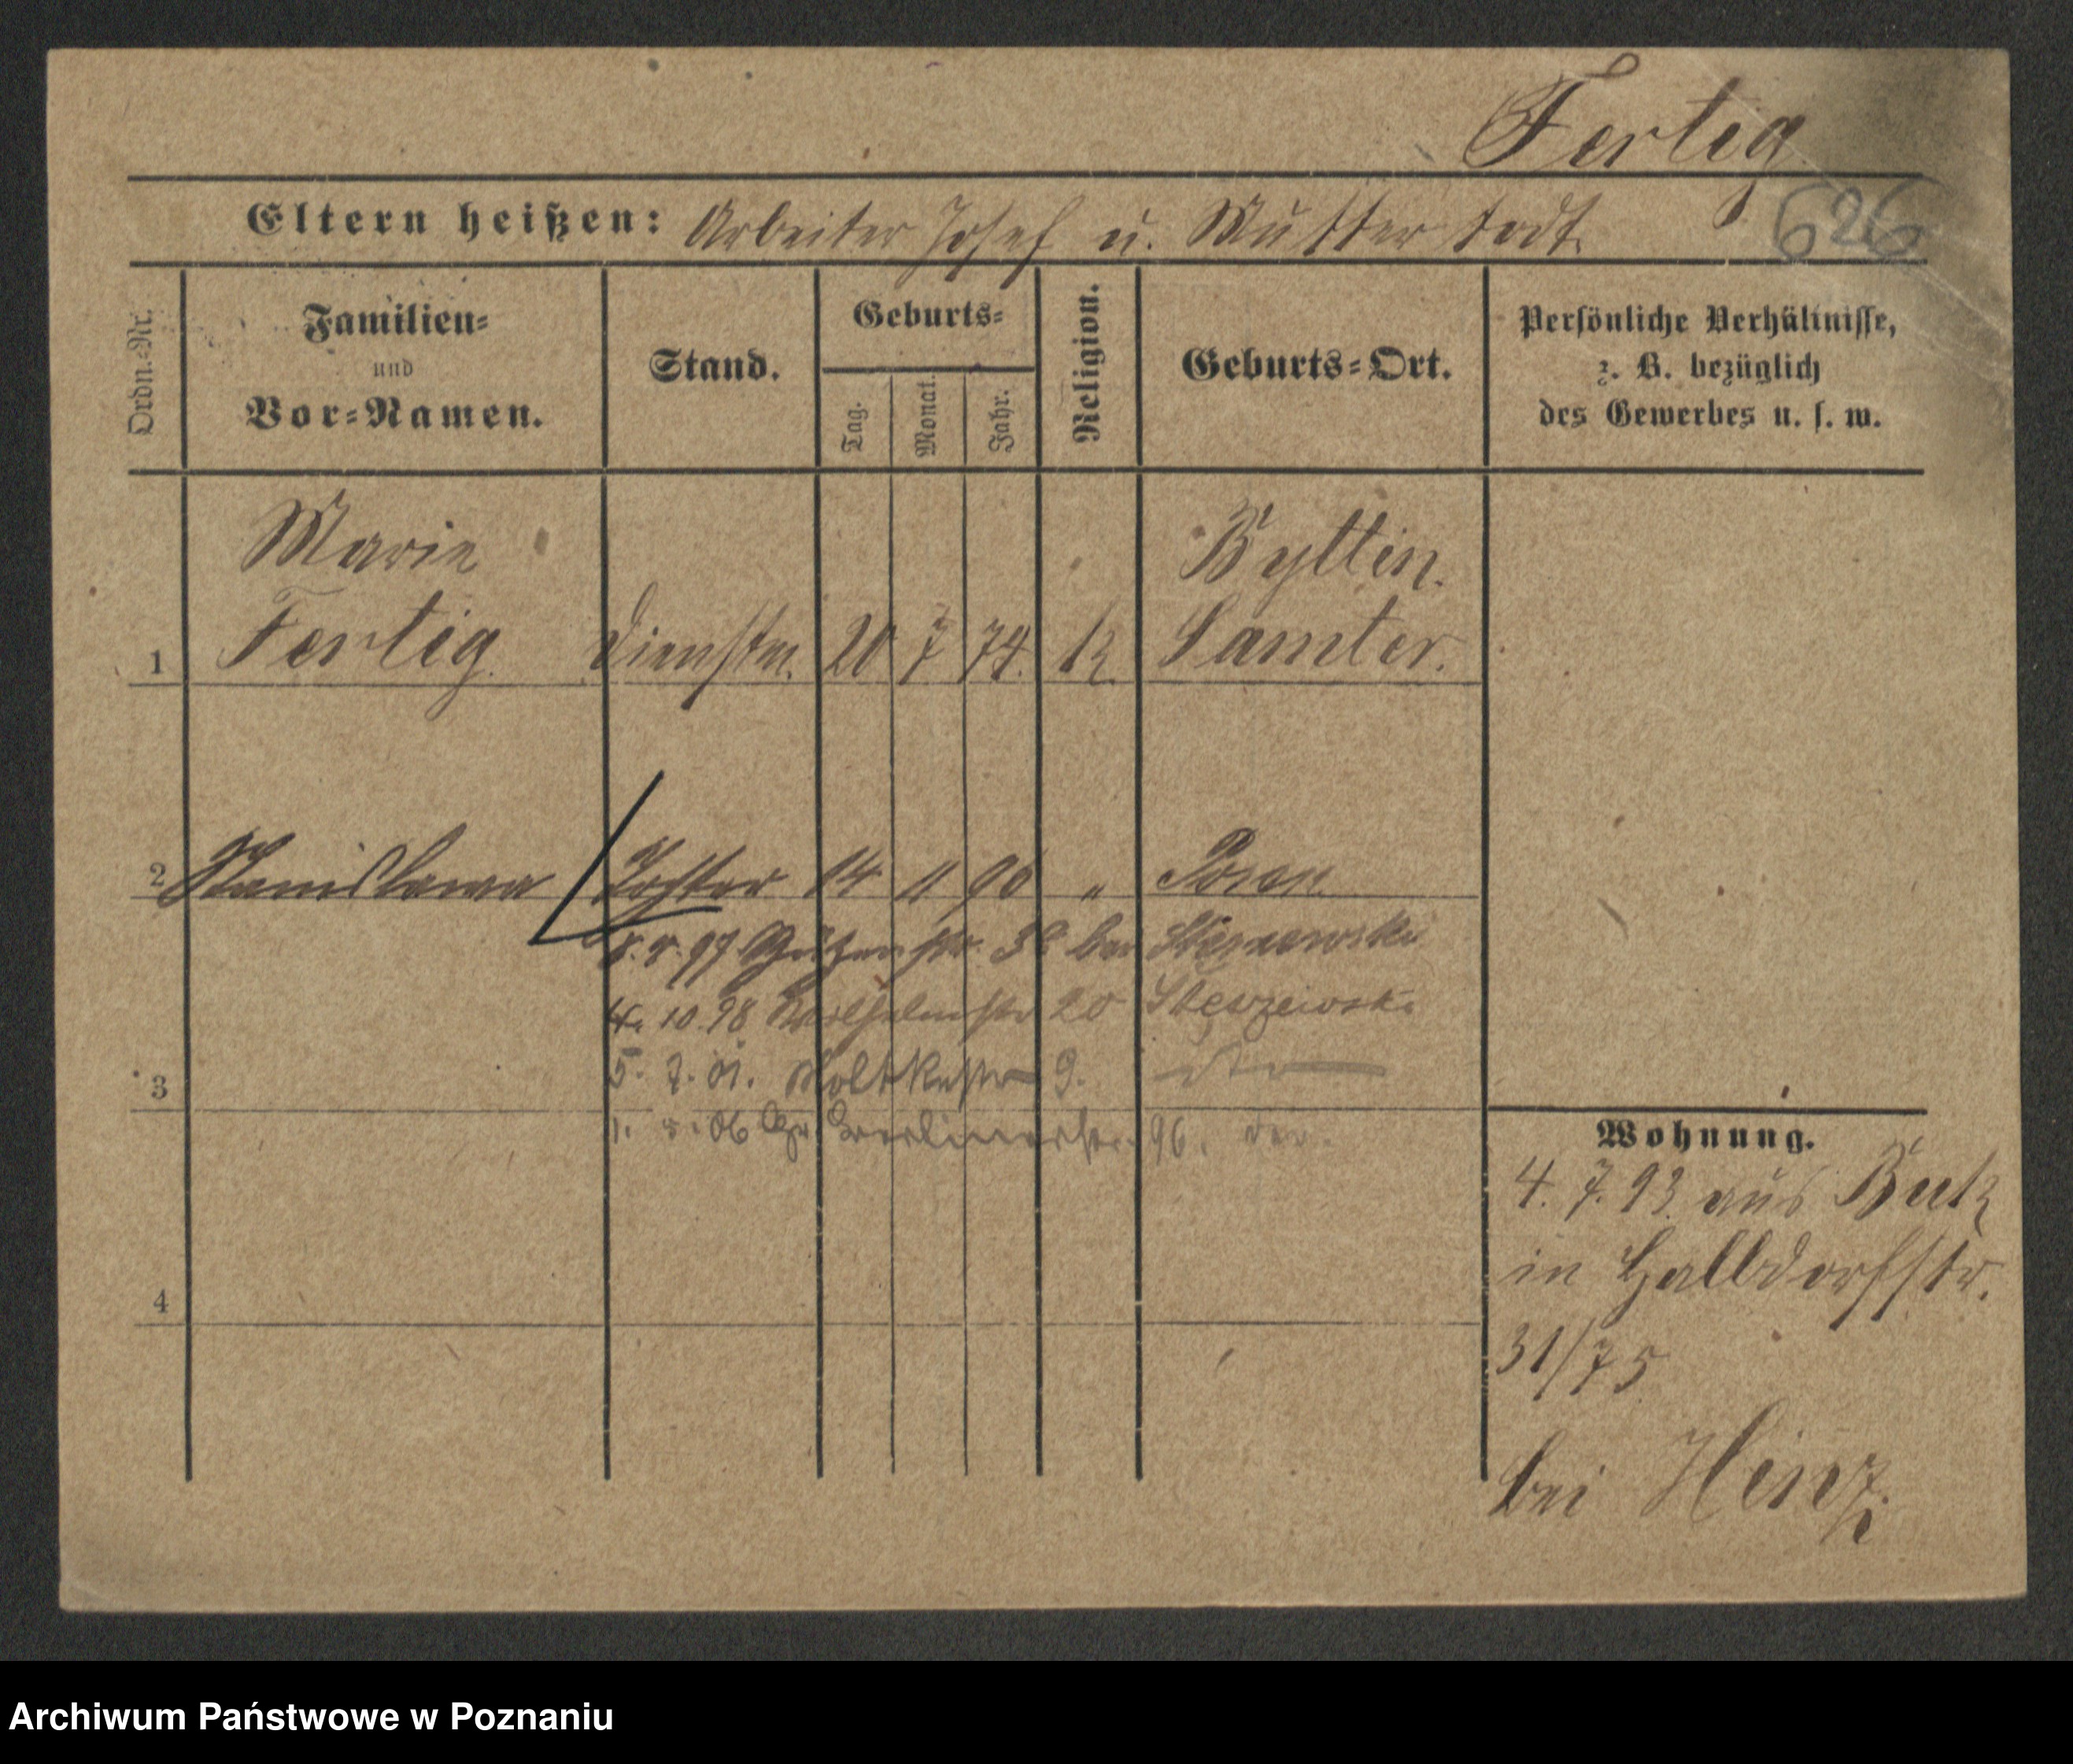 Fertig
Eltern heißen: Arbeiter Josef u. Mutter todt.
626
Ordn.-Nr.
Familien- und Vor-Namen.
Stand.
Geburts-
Tag.
Monat.
Jahr.
Religion.
Geburts-Ort.
Persönliche Verhältnisse,
z. B. bezüglich
des Gewerbes u. s. w.
Marie Byttin.
1 Fertig. Dienstm. 20 7 74. k. Samter.
2 Stanislawa Tochter 14 11 96 " Posen
97 38 bei
4. 10. 98 Wilhelmstr 20
3 5. 7. 01. Moltkestr 9. dto
1. 06 Gr. Berlinerstr. 96.
4
Wohnung.
4. 7. 93 aus Buk
in Halbdorfstr.
31/75
bei Hinz.
Archiwum Państwowe w Poznaniu